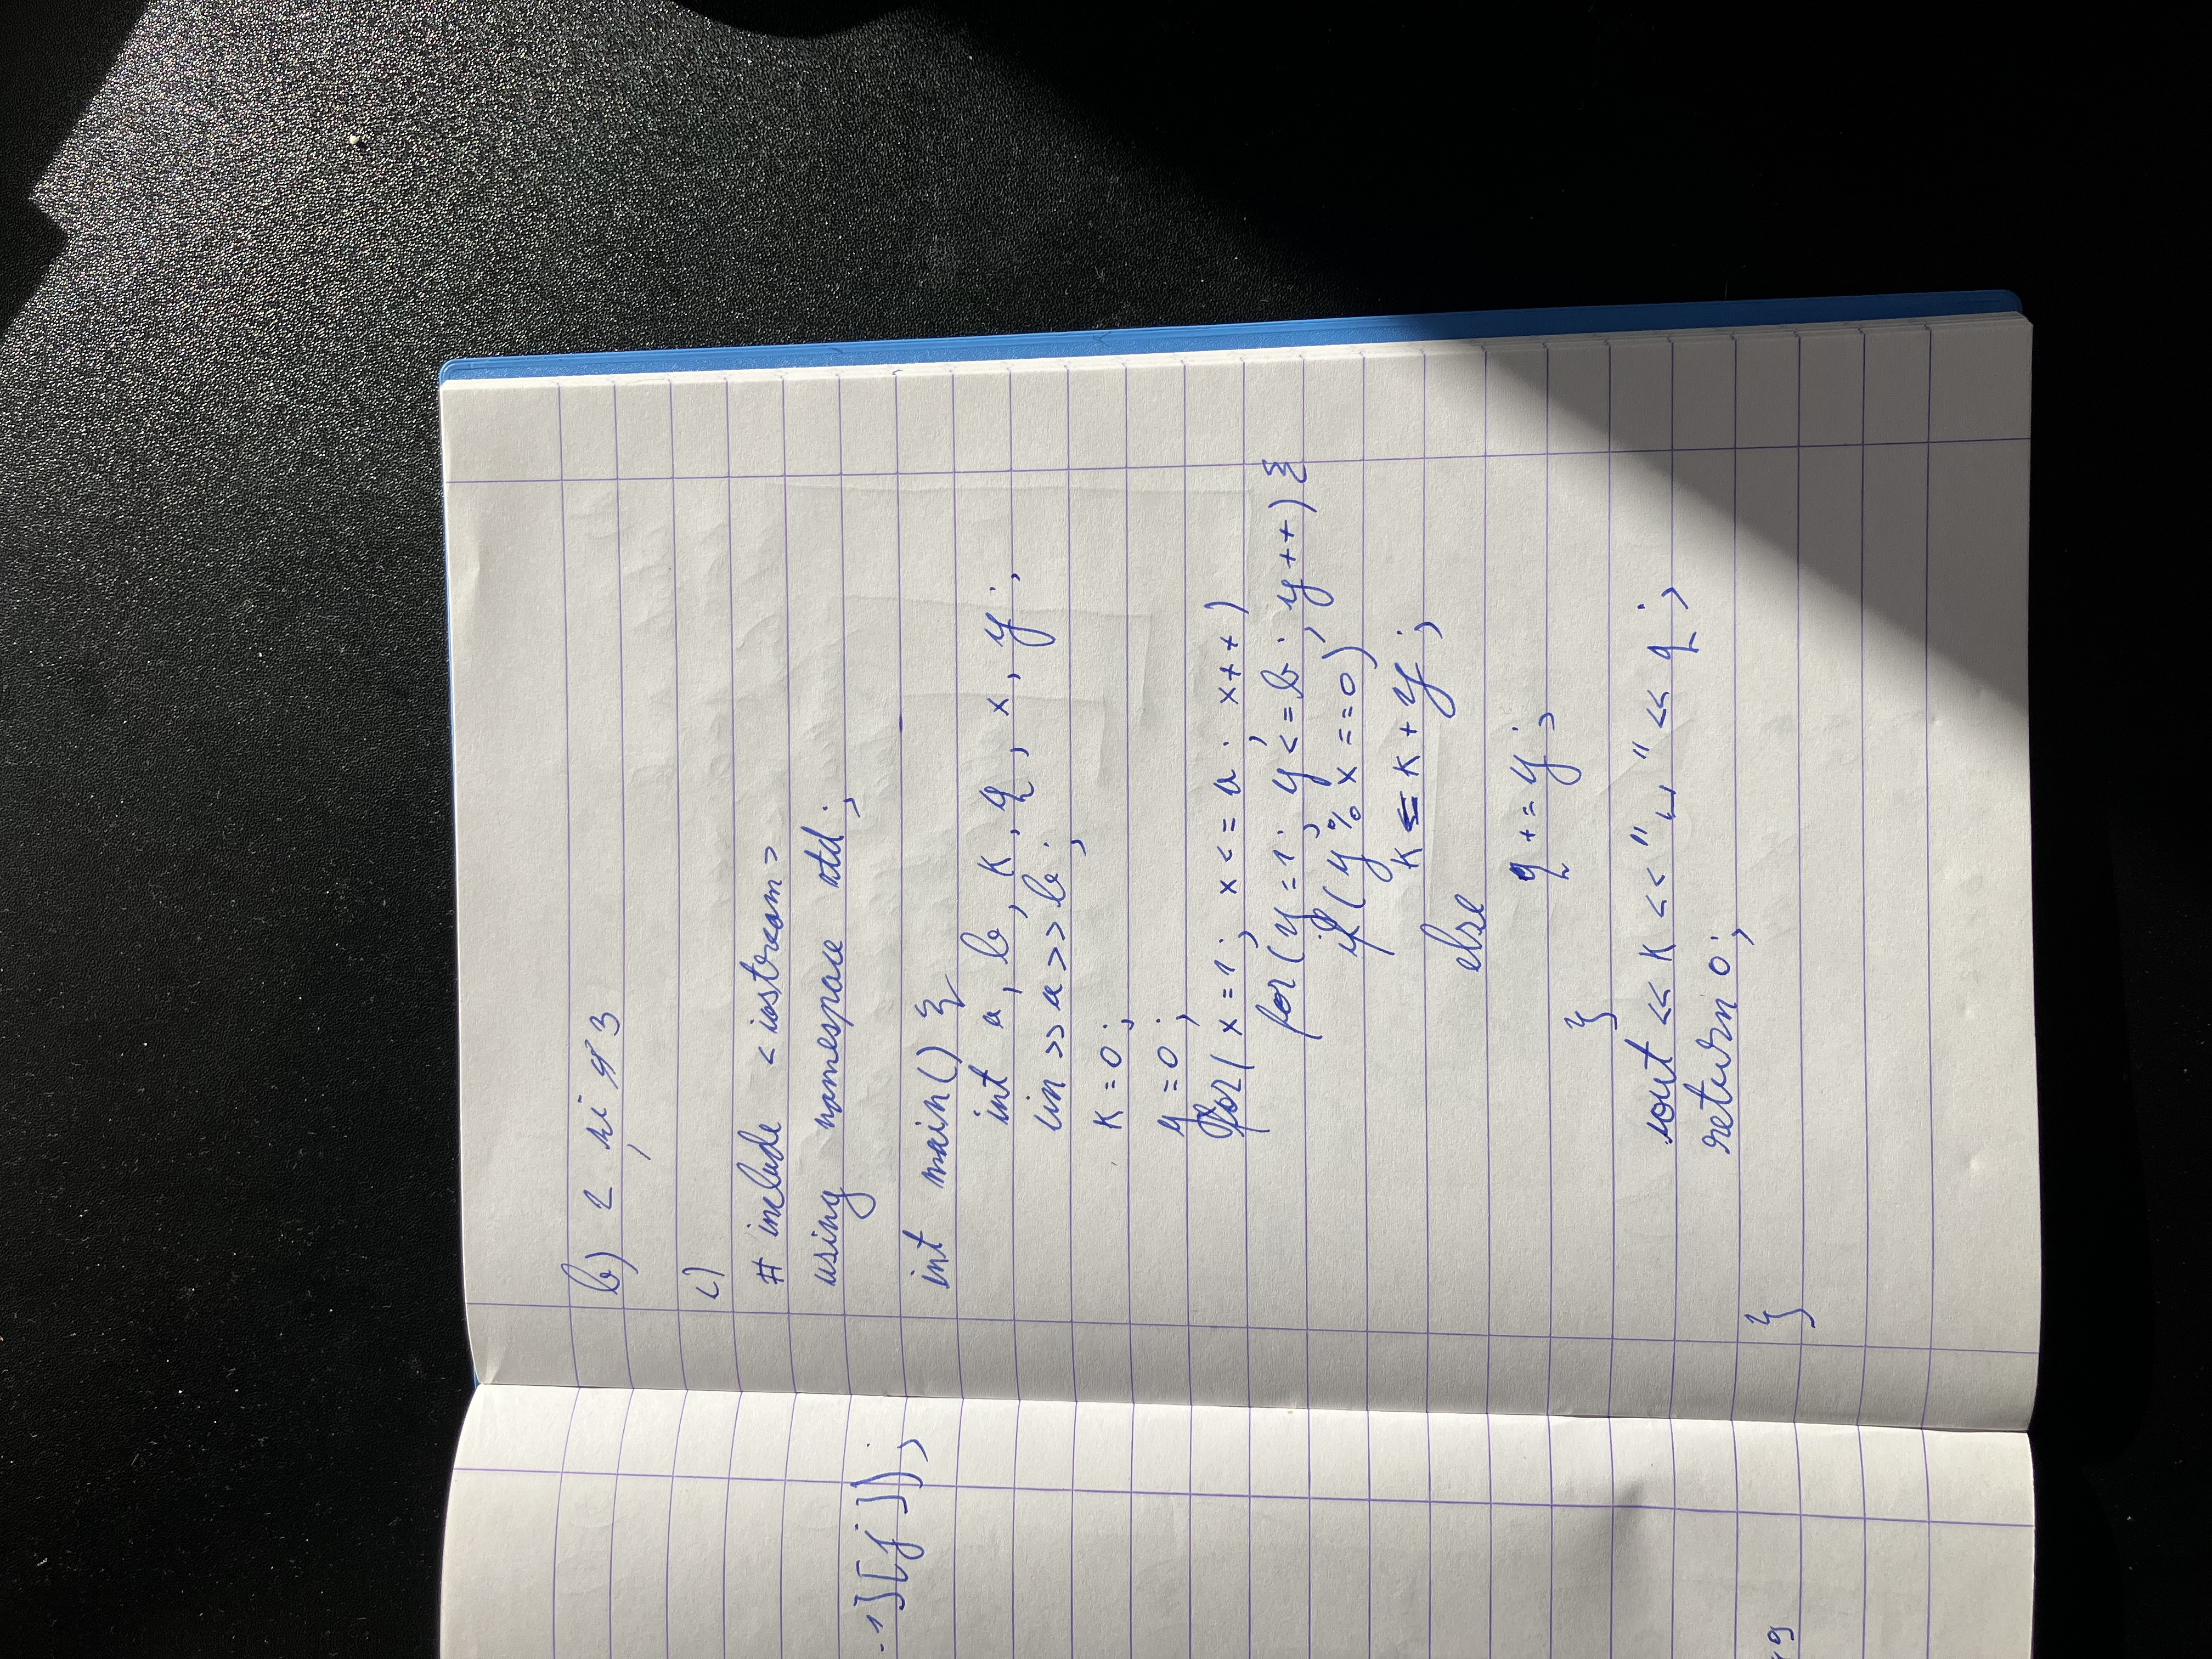 -1][j]);
49
b) 2 și 3
c)
# include <iostream>
using namespace std;
int main() {
int a, b, k, q, x, y;
cin >> a >> b;
k = 0;
y = 0;
for( x = 1; x <= a; x++ )
for( y = 1; y <= b; y++ ) {
if( y % x == 0)
k = k + y;
else
q += y;
}
cout << k << "␣" << q;
return 0;
}